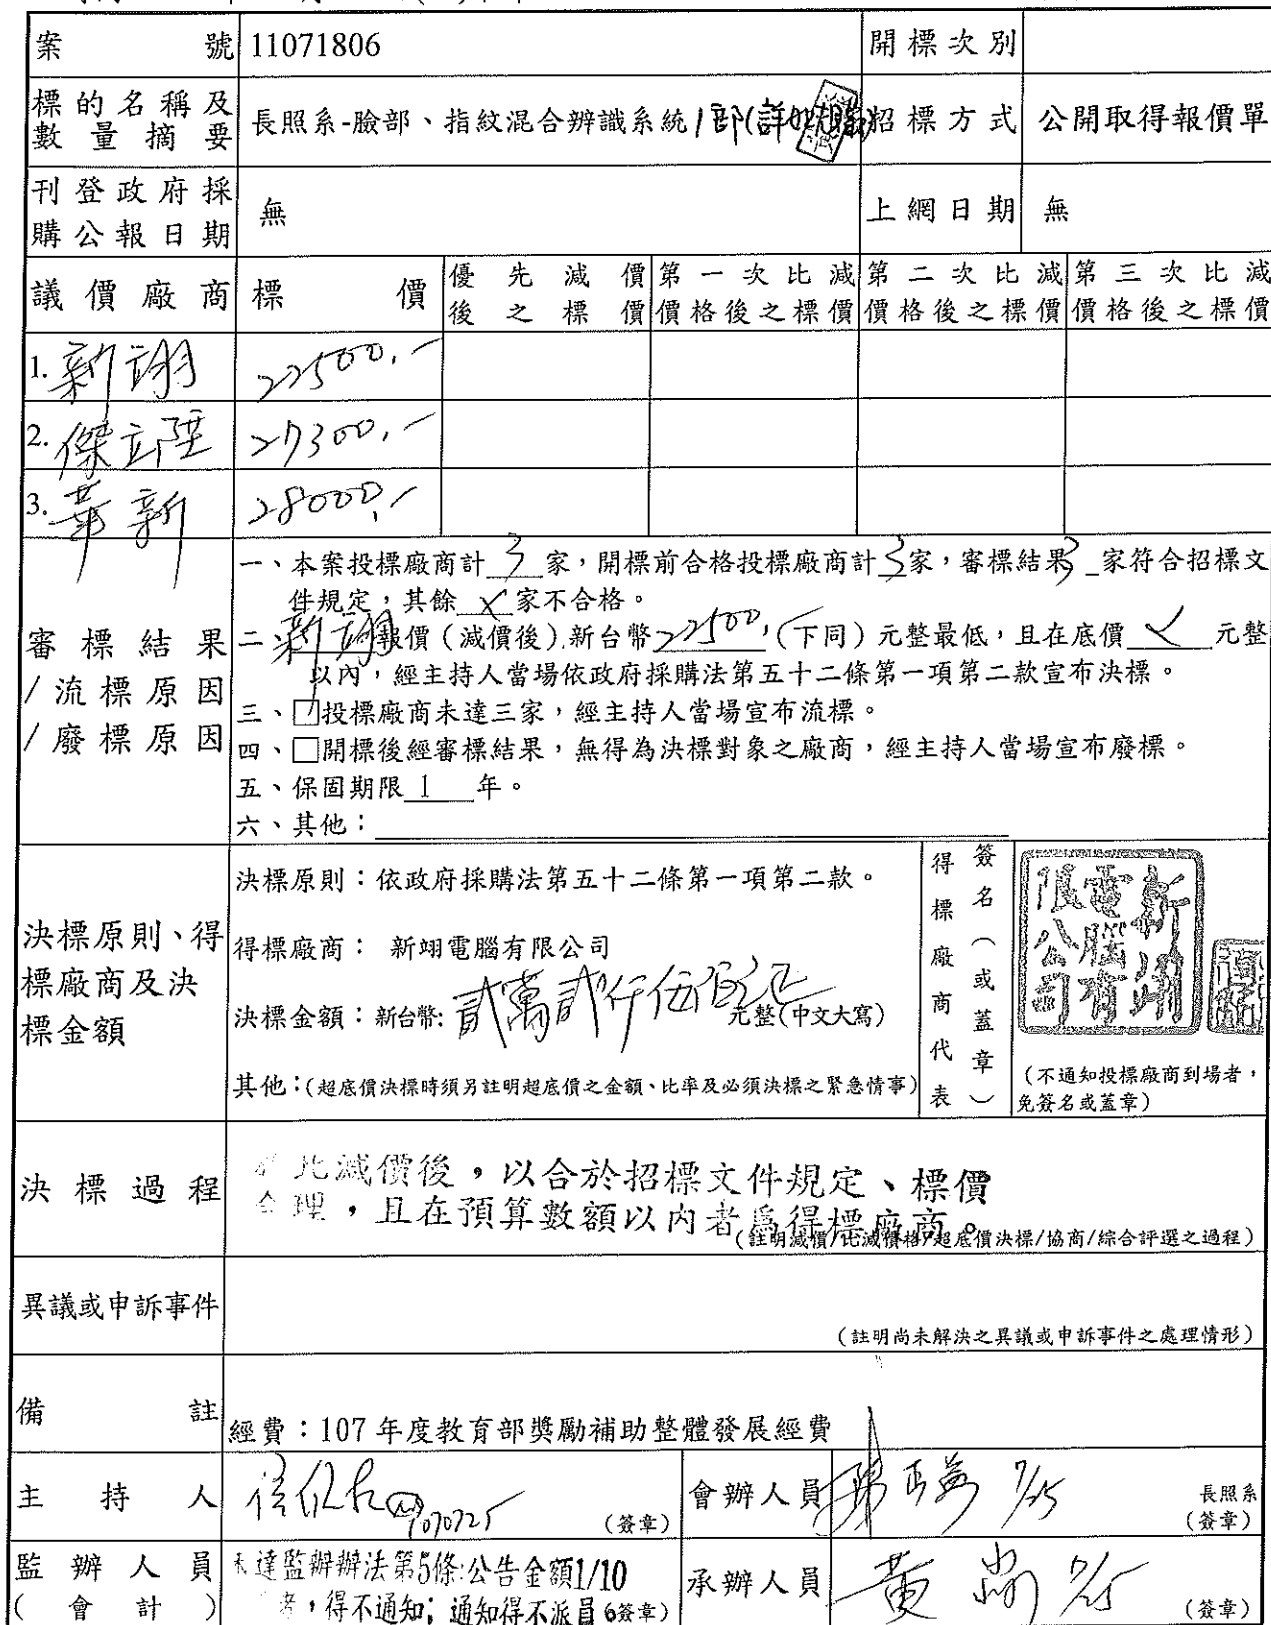 案號 11071806 開標次別
標的名稱及數量摘要 長照系-臉部、指紋混合辨識系統1部(詳 招標方式 公開取得報價單
刊登政府採購公報日期 無 上網日期 無
議價廠商 標價 優先減價後之標價 第一次比減價格後之標價 第二次比減價格後之標價 第三次比減價格後之標價
1. 新翊 22500,-
2. 傑立 27300,-
3. 華新 28000,-
審標結果/流標原因/廢標原因
一、本案投標廠商計 3 家,開標前合格投標廠商計 3 家,審標結果 3 家符合招標文
件規定,其餘 X 家不合格。
二、新翊報價(減價後)新台幣 22500,-(下同)元整最低,且在底價 元整
以內,經主持人當場依政府採購法第五十二條第一項第二款宣布決標。
三、□投標廠商未達三家,經主持人當場宣布流標。
四、□開標後經審標結果,無得為決標對象之廠商,經主持人當場宣布廢標。
五、保固期限 1 年。
六、其他:
決標原則、得標廠商及決標金額
決標原則:依政府採購法第五十二條第一項第二款。
得標廠商: 新翊電腦有限公司
決標金額:新台幣:貳萬貳仟伍佰元 元整(中文大寫)
其他:(超底價決標時須另註明超底價之金額、比率及必須決標之緊急情事)
得標廠商代表 簽名(或蓋章)
新翊電腦有限公司
(不通知投標廠商到場者,
免簽名或蓋章)
決標過程
比減價後,以合於招標文件規定、標價
合理,且在預算數額以內者為得標廠商。
(註明減價/比減價格/超底價決標/協商/綜合評選之過程)
異議或申訴事件
(註明尚未解決之異議或申訴事件之處理情形)
備註 經費:107 年度教育部獎勵補助整體發展經費
主持人 1070725 (簽章) 會辦人員 7/25 長照系
(簽章)
監辦人員(會計) 未達監辦辦法第5條:公告金額1/10
者,得不通知;通知得不派員 (簽章)
承辦人員 黃 7/25 (簽章)